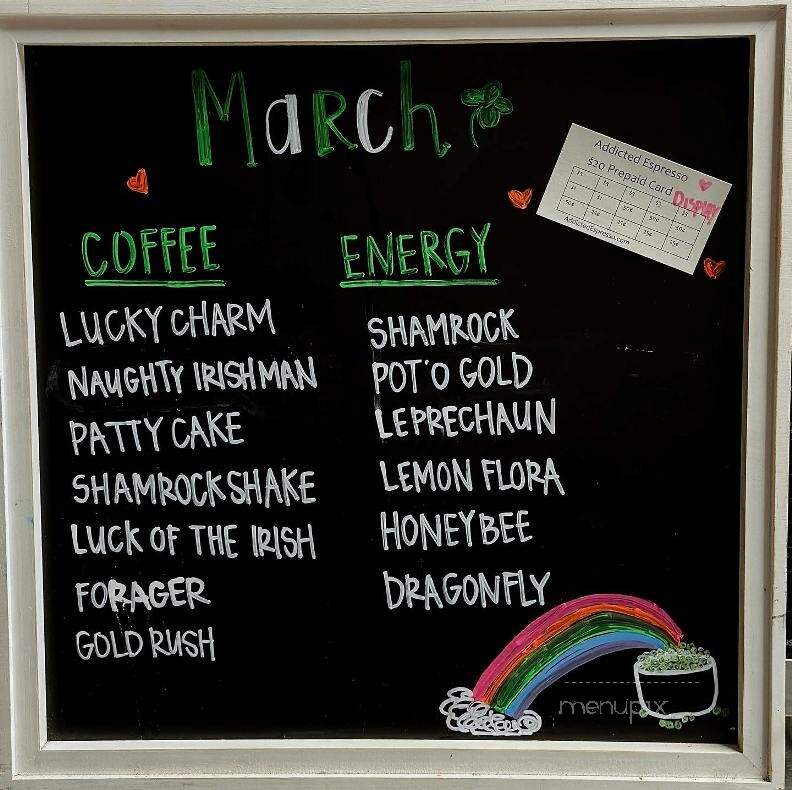 March
Addicted Espresso
$20 Prepaid Card
DISPLAY
AddictedEspresso.com
COFFEE
LUCKY CHARM
NAUGHTY IRISHMAN
PATTY CAKE
SHAMROCK SHAKE
LUCK OF THE IRISH
FORAGER
GOLD RUSH
ENERGY
SHAMROCK
POT'O GOLD
LEPRECHAUN
LEMON FLORA
HONEYBEE
DRAGONFLY
menupix